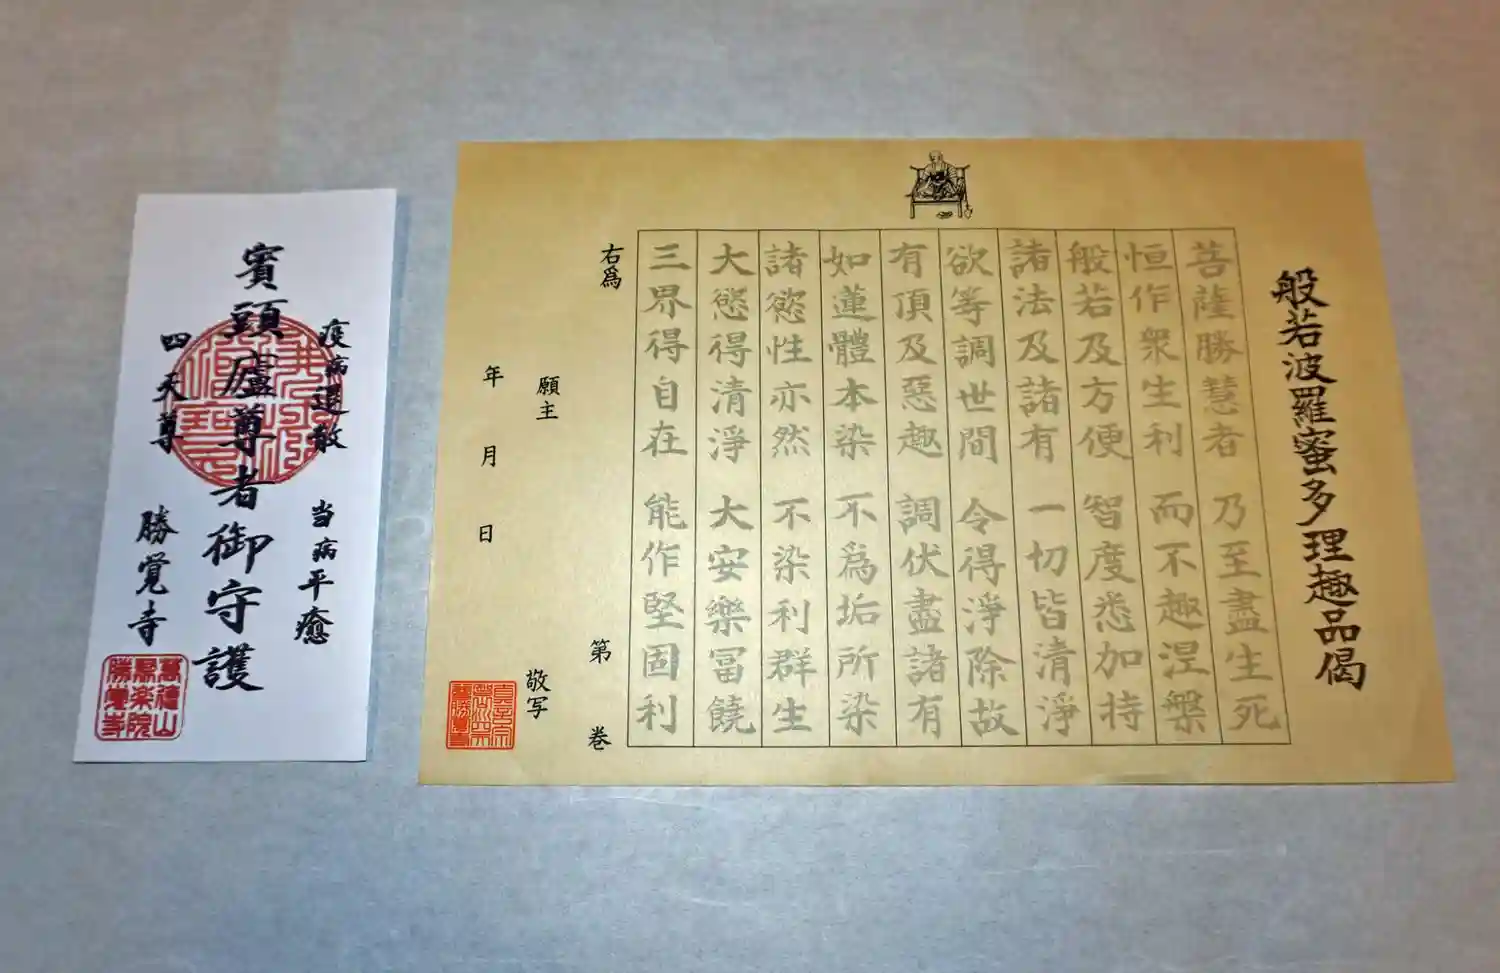 般若波羅蜜多理趣品偈
菩薩勝慧者 乃至盡生死
恒作衆生利 而不趣涅槃
般若及方便 智度悉加持
諸法及諸有 一切皆清淨
欲等調世間 令得淨除故
有頂及惡趣 調伏盡諸有
如蓮體本染 不爲垢所染
諸慾性亦然 不染利群生
大慾得清淨 大安樂冨饒
三界得自在 能作堅固利
右爲
第 巻
願主
敬写
年 月 日
疫病退散
当病平癒
賓頭盧尊者御守護
四天尊
勝覚寺
萬徳山
聖楽院
勝覺寺